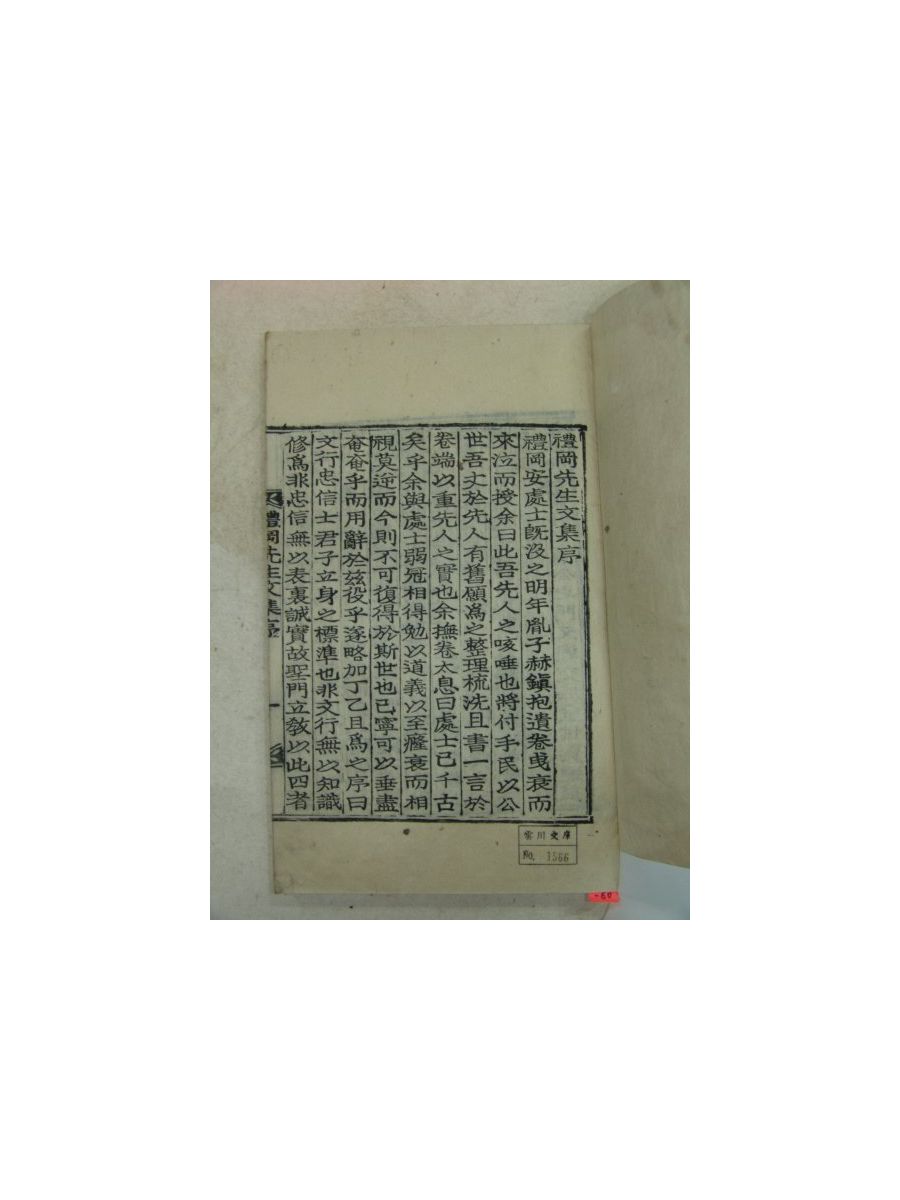 禮岡先生文集序
禮岡安處士旣沒之明年胤子赫鎭抱遺卷曳衰而
來泣而授余曰此吾先人之咳唾也將付手民以公
世吾丈於先人有舊願爲之整理梳洗且書一言於
卷端以重先人之實也余撫卷太息曰處士已千古
矣乎余與處士弱冠相得勉以道義以至癃衰而相
視莫逆而今則不可復得於斯世也已寧可以垂盡
奄奄乎而用辭於玆役乎遂略加丁乙且爲之序曰
文行忠信士君子立身之標準也非文行無以知識
修爲非忠信無以表裏誠實故聖門立敎以此四者
禮岡先生文集序
一
雲川文庫
No. 1566
-60